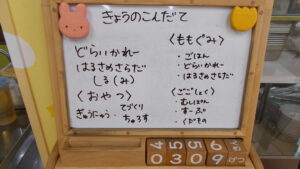 きょうのこんだて
どらいかれー
はるさめさらだ
しる(み)
〈おやつ〉
てづくり
ぎゅうにゅう・ちゅろす
〈ももぐみ〉
・ごはん
・どらいかれー
・はるさめさらだ
〈ごごしょく〉
・むしぱん
・すーぷ
・くだもの
4 5 5 6
0 3 0 9